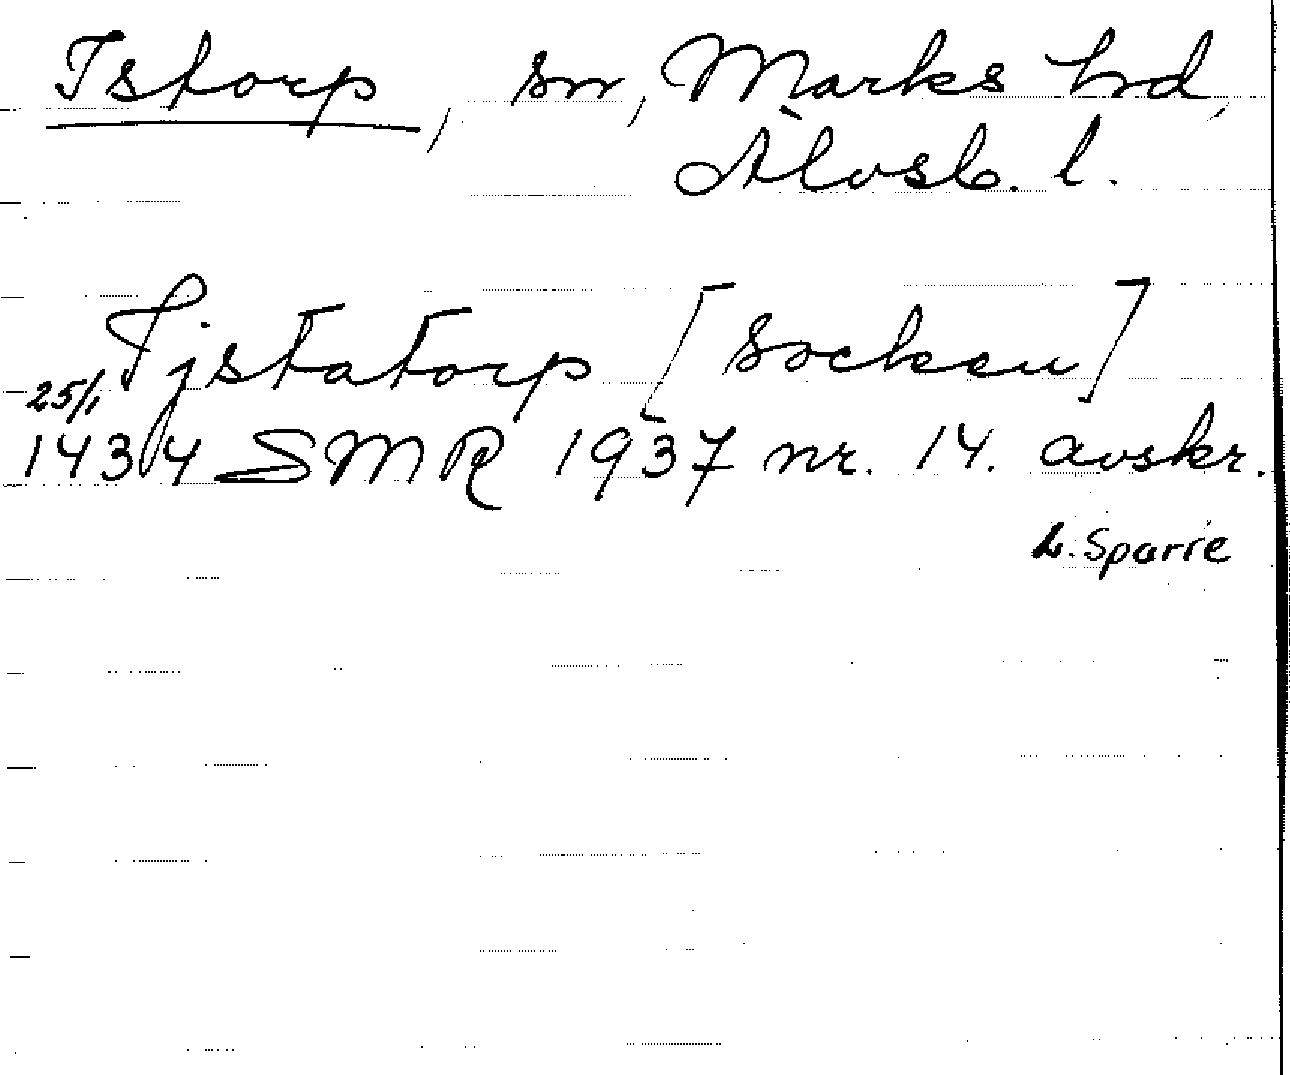 Istorp, sn, Marks hd,
Älvsb. l.
Ijstatorp [socken]
25/1
1434 SMR 1937 nr. 14. avskr.
L. Sparre